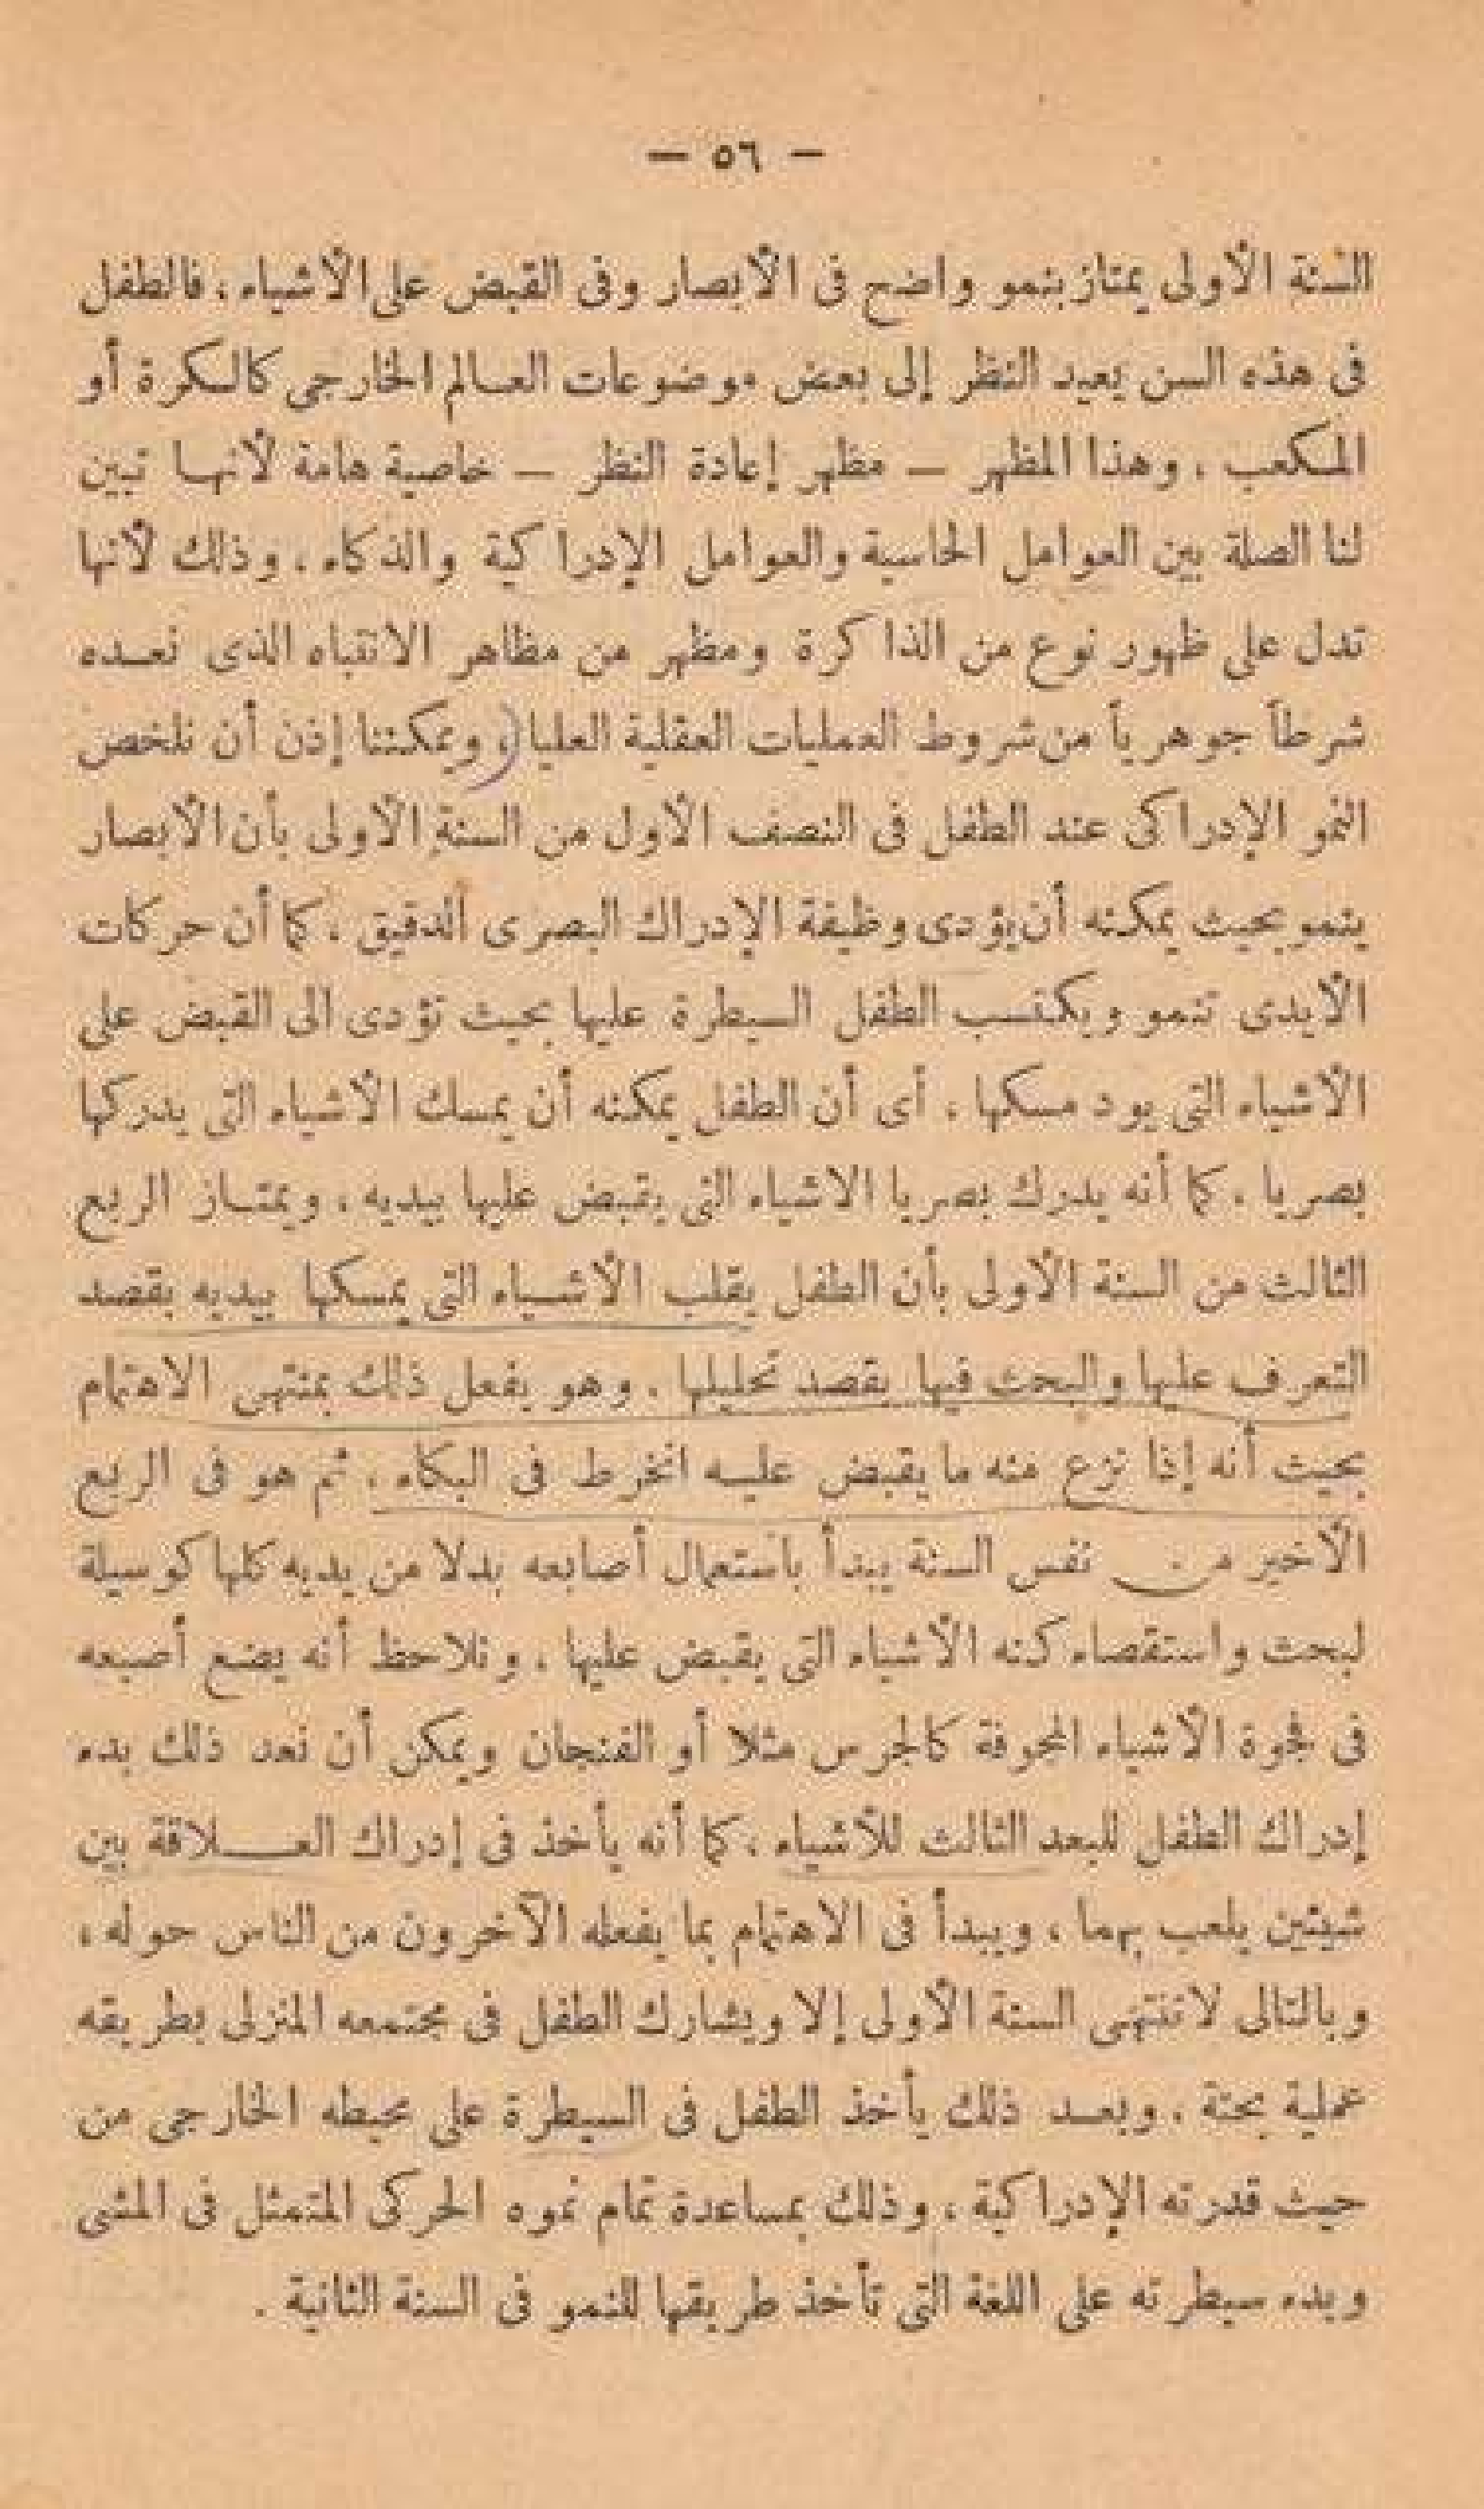 — ٥٦ —
السنة الأولى يمتاز بنمو واضح فى الأبصار وفى القبض على الأشياء، فالطفل
فى هذه السن يعيد النظر إلى بعض موضوعات العالم الخارجى كالكرة أو
المكعب، وهذا المظهر — مظهر إعادة النظر — خاصية هامة لأنها تبين
لنا الصلة بين العوامل الحاسية والعوامل الإدراكية والذكاء، وذلك لأنها
تدل على ظهور نوع من الذاكرة ومظهر من مظاهر الانتباه الذى نعده
شرطاً جوهرياً من شروط العمليات العقلية العليا، ويمكننا إذن أن نلخص
النمو الإدراكى عند الطفل فى النصف الأول من السنة الأولى بأن الأبصار
ينمو بحيث يمكنه أن يؤدى وظيفة الإدراك البصرى الدقيق، كما أن حركات
الأيدى تنمو ويكتسب الطفل السيطرة عليها بحيث تؤدى الى القبض على
الأشياء التى يود مسكها، أى أن الطفل يمكنه أن يمسك الأشياء التى يدركها
بصريا، كما أنه يدرك بصريا الاشياء التى يقبض عليها بيديه، ويمتاز الربع
الثالث من السنة الأولى بأن الطفل يقلب الأشياء التى يمسكها بيديه بقصد
التعرف عليها والبحث فيها بقصد تحليلها. وهو يفعل ذلك بمنتهى الاهتمام
بحيث أنه إذا نزع منه ما يقبض عليه انخرط فى البكاء. ثم هو فى الربع
الأخير من نفس السنة يبدأ باستعمال أصابعه بدلا من يديه كلها كوسيلة
لبحث واستقصاء كنه الأشياء التى يقبض عليها، ونلاحظ أنه يضع أصبعه
فى فجوة الأشياء المجوفة كالجرس مثلا أو الفنجان ويمكن أن نعد ذلك بدء
إدراك الطفل للبعد الثالث للأشياء، كما أنه يأخذ فى إدراك العلاقة بين
شيئين يلعب بهما، ويبدأ فى الاهتمام بما يفعله الآخرون من الناس حوله،
وبالتالى لا تنتهى السنة الأولى إلا ويشارك الطفل فى مجتمعه المنزلى بطريقه
عملية بحتة، وبعد ذلك يأخذ الطفل فى السيطرة على محيطه الخارجى من
حيث قدرته الإدراكية، وذلك بمساعدة تمام نموه الحركى المتمثل فى المشى
وبدء سيطرته على اللغة التى تأخذ طريقها للنمو فى السنة الثانية.